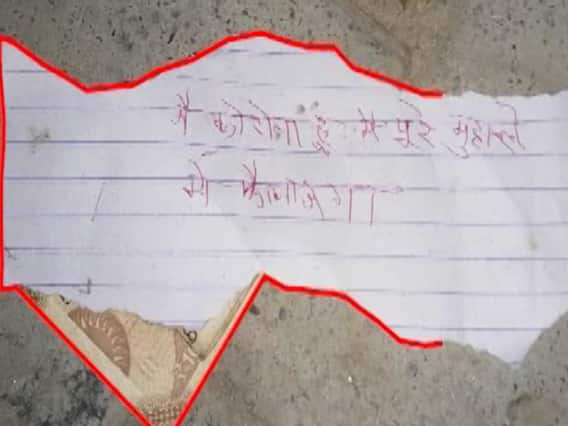 मै कोरोना हूं मै पूरे मुहल्ले
मे फैलाऊंगा
10